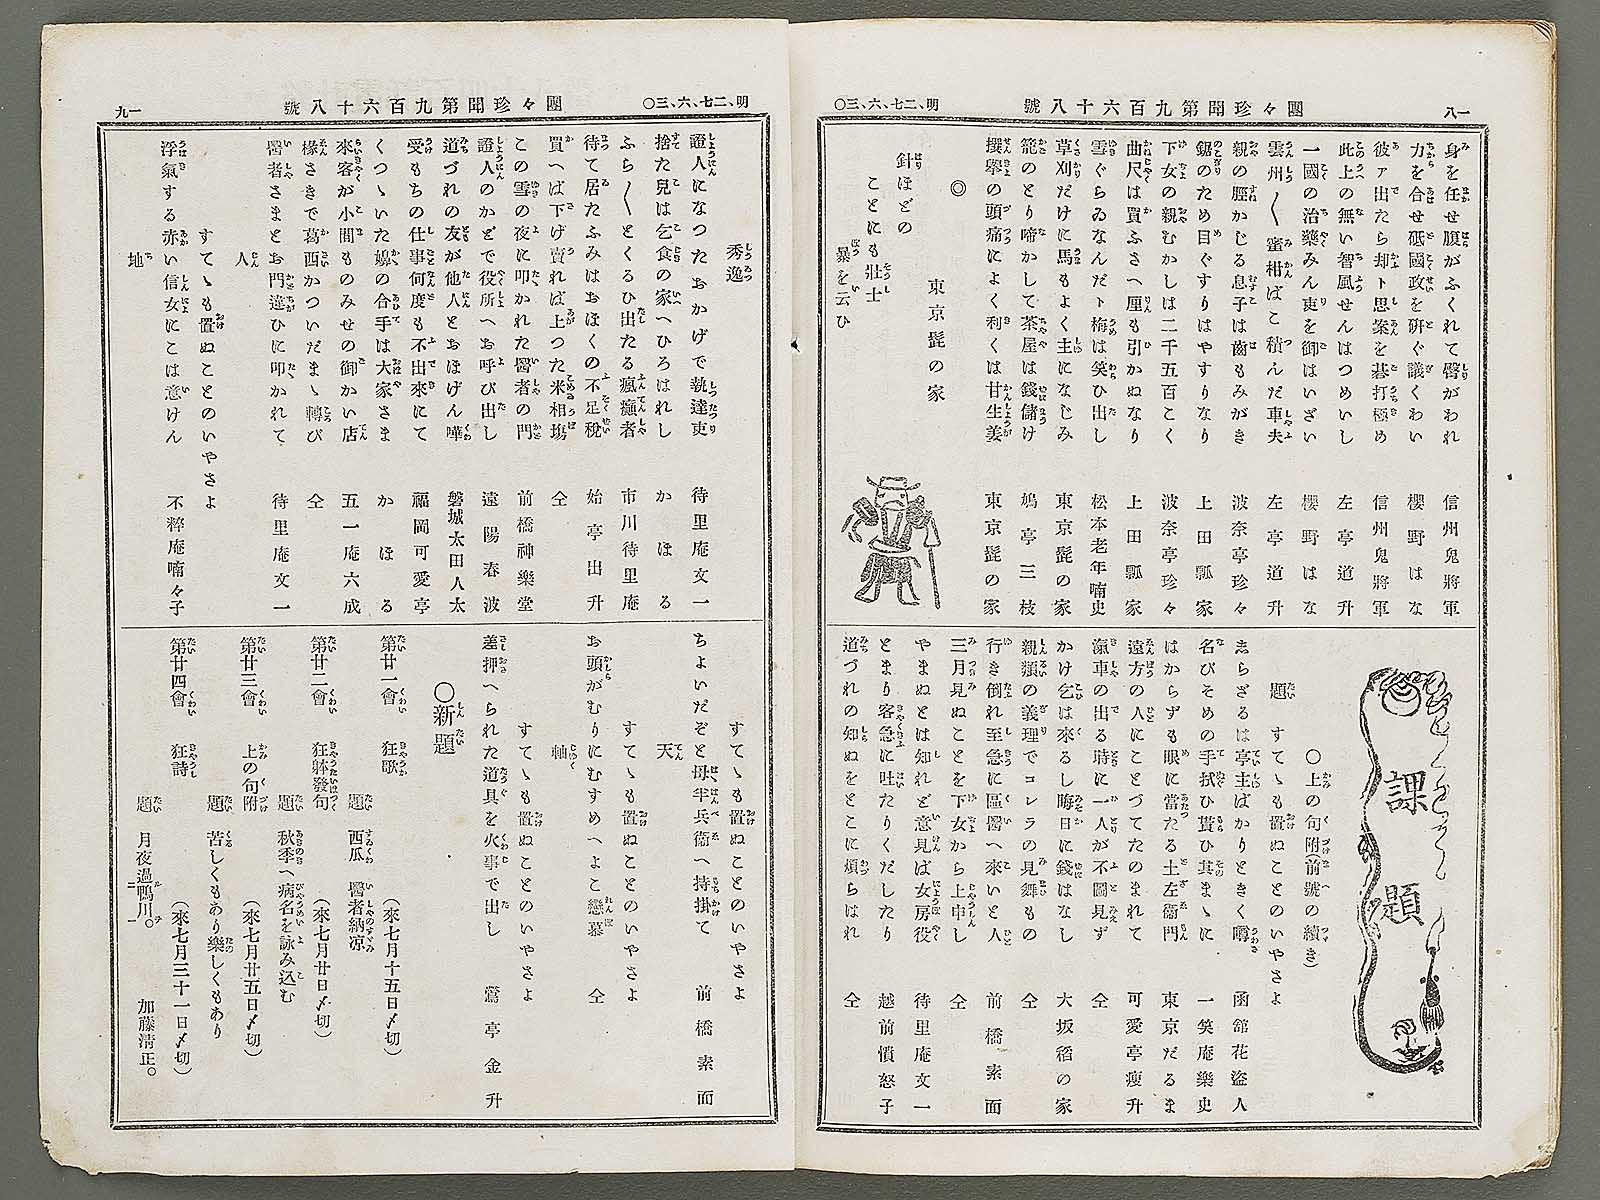 一八
團々珍聞第九百六十八號
明、二七、六、三〇
身を任せ腹がふくれて臀がわれ 信州鬼將軍
力を合せ砥國政を硏ぐ議くわい 櫻野はな
彼ァ出たら却ト思案を碁打極め 信州鬼將軍
此上の無い智風せんはつめいし 左亭道升
一國の治藥みん吏を御はいざい 櫻野はな
雲州〳〵蜜柑ばこ積んだ車夫 左亭道升
親の脛かじる息子は齒もみがき 波奈亭珍々
鋸のため目ぐすりはやすりなり 上田瓢家
下女の親むかしは二千五百こく 波奈亭珍々
曲尺は買ふさへ厘も引かぬなり 上田瓢家
雪ぐらゐなんだト梅は笑ひ出し 松本老年喃史
草刈だけに馬もよく主になじみ 東京髭の家
籠のとり啼かして茶屋は錢儲け 鳩亭三枝
撰擧の頭痛によく利くは甘生姜 東京髭の家
◎
東京髭の家
針ほどの
ことにも壯士
暴を云ひ
課題
〇上の句附(前號の續き)
題 すてゝも置ぬことのいやさよ
志らざるは亭主ばかりときく噂 函館花盗人
名びそめの手拭ひ貰ひ其まゝに 一笑庵樂史
はからずも眼に當たる土左衞門 東京だるま
遠方の人にことづてたのまれて 可愛亭瘦升
滊車の出る時に一人が不圖見ず 仝
かけ乞は來るし晦日に錢はなし 大坂稻の家
親類の義理でコレラの見舞もの 仝
行き倒れ至急に區醫へ來いと人 前橋素面
三月見ぬことを下女から上申し 仝
やまぬとは知れど意見ば女房役 待里庵文一
とまり客急に吐たりくだしたり 越前憤怒子
道づれの知ぬをとこに煩らはれ 仝
明、二七、六、三〇
團々珍聞第九百六十八號
一九
秀逸
證人になつたおかげで執達吏 待里庵文一
捨た兒は乞食の家へひろはれし かほる
ふら〳〵とくるひ出たる瘋癲者 市川待里庵
待て居たふみはおほくの不足稅 始亭出升
買へば下げ賣れば上つた米相塲 仝
この雪の夜に叩かれた醫者の門 前橋神樂堂
證人のかどで役所へお呼び出し 遠陽春波
道づれの友が他人とおほげん嘩 磐城太田人太
受もちの仕事何度も不出來にて 福岡可愛亭
くつゝいた嬶の合手は大家さま かほる
來客が小間ものみせの御かい店 五一庵六成
椽さきで葛西かついだまゝ轉び 仝
醫者さまとお門違ひに叩かれて 待里庵文一
人
すてゝも置ぬことのいやさよ
浮氣する赤い信女にこは意けん 不粹庵喃々子
地
すてゝも置ぬことのいやさよ
ちよいだぞと母半兵衞へ持掛て 前橋素面
天
すてゝも置ぬことのいやさよ
お頭がむりにむすめへよこ戀慕 仝
軸
すてゝも置ぬことのいやさよ
差押へられた道具を火事で出し 鶯亭金升
〇新題
第廿一會 狂歌 題 西瓜 醫者納凉 (來七月十五日〆切)
第廿二會 狂躰發句 題 秋季へ病名を詠み込む (來七月廿日〆切)
第廿三會 上の句附 題 苦しくもあり樂しくもあり (來七月廿五日〆切)
第廿四會 狂詩 題 月夜過鴨川。 加藤清正。 (來七月三十一日〆切)